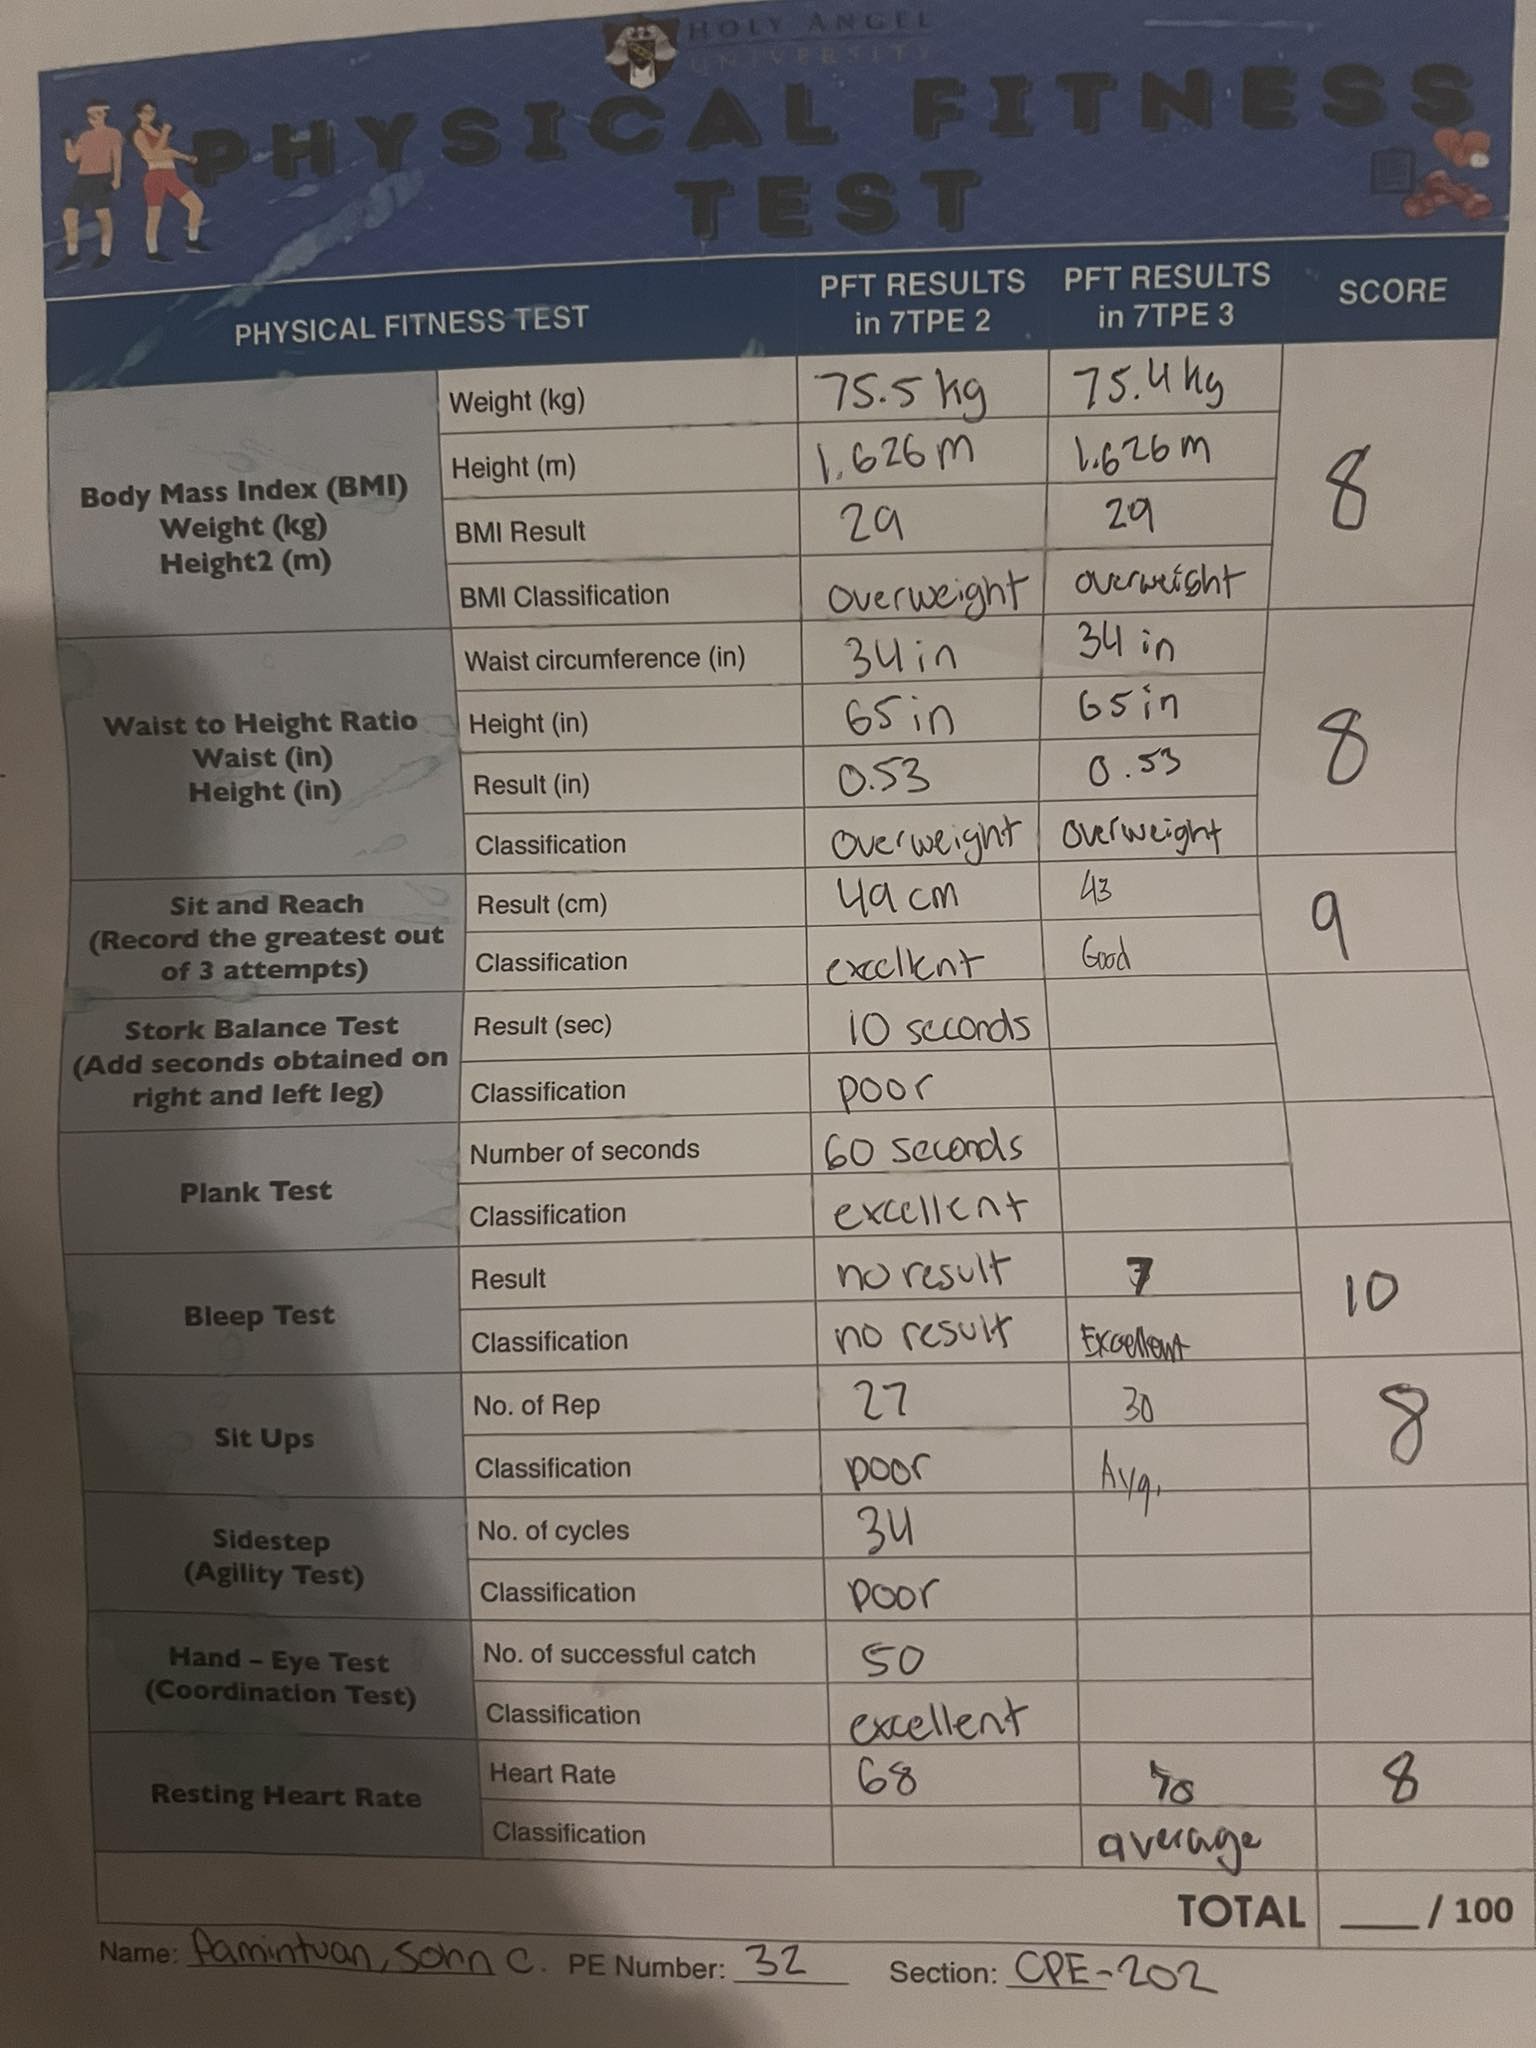 HOLY ANGEL
UNIVERSITY
PHYSICAL FITNESS
TEST
PHYSICAL FITNESS TEST PFT RESULTS in 7TPE 2 PFT RESULTS in 7TPE 3 SCORE
Body Mass Index (BMI)
Weight (kg)
Height2 (m)
Weight (kg) 75.5 kg 75.4 kg
Height (m) 1.626 m 1.626 m
BMI Result 29 29
BMI Classification overweight overweight
8
Waist to Height Ratio
Waist (in)
Height (in)
Waist circumference (in) 34 in 34 in
Height (in) 65 in 65 in
Result (in) 0.53 0.53
Classification overweight overweight
8
Sit and Reach
(Record the greatest out
of 3 attempts)
Result (cm) 49 cm 43
Classification excellent Good
9
Stork Balance Test
(Add seconds obtained on
right and left leg)
Result (sec) 10 seconds
Classification poor
Plank Test
Number of seconds 60 seconds
Classification excellent
Bleep Test
Result no result 7
Classification no result Excellent
10
Sit Ups
No. of Rep 27 30
Classification poor Avg.
8
Sidestep
(Agility Test)
No. of cycles 34
Classification poor
Hand – Eye Test
(Coordination Test)
No. of successful catch 50
Classification excellent
Resting Heart Rate
Heart Rate 68 70 8
Classification average
TOTAL ___ / 100
Name: Pamintuan, John C. PE Number: 32 Section: CPE-202